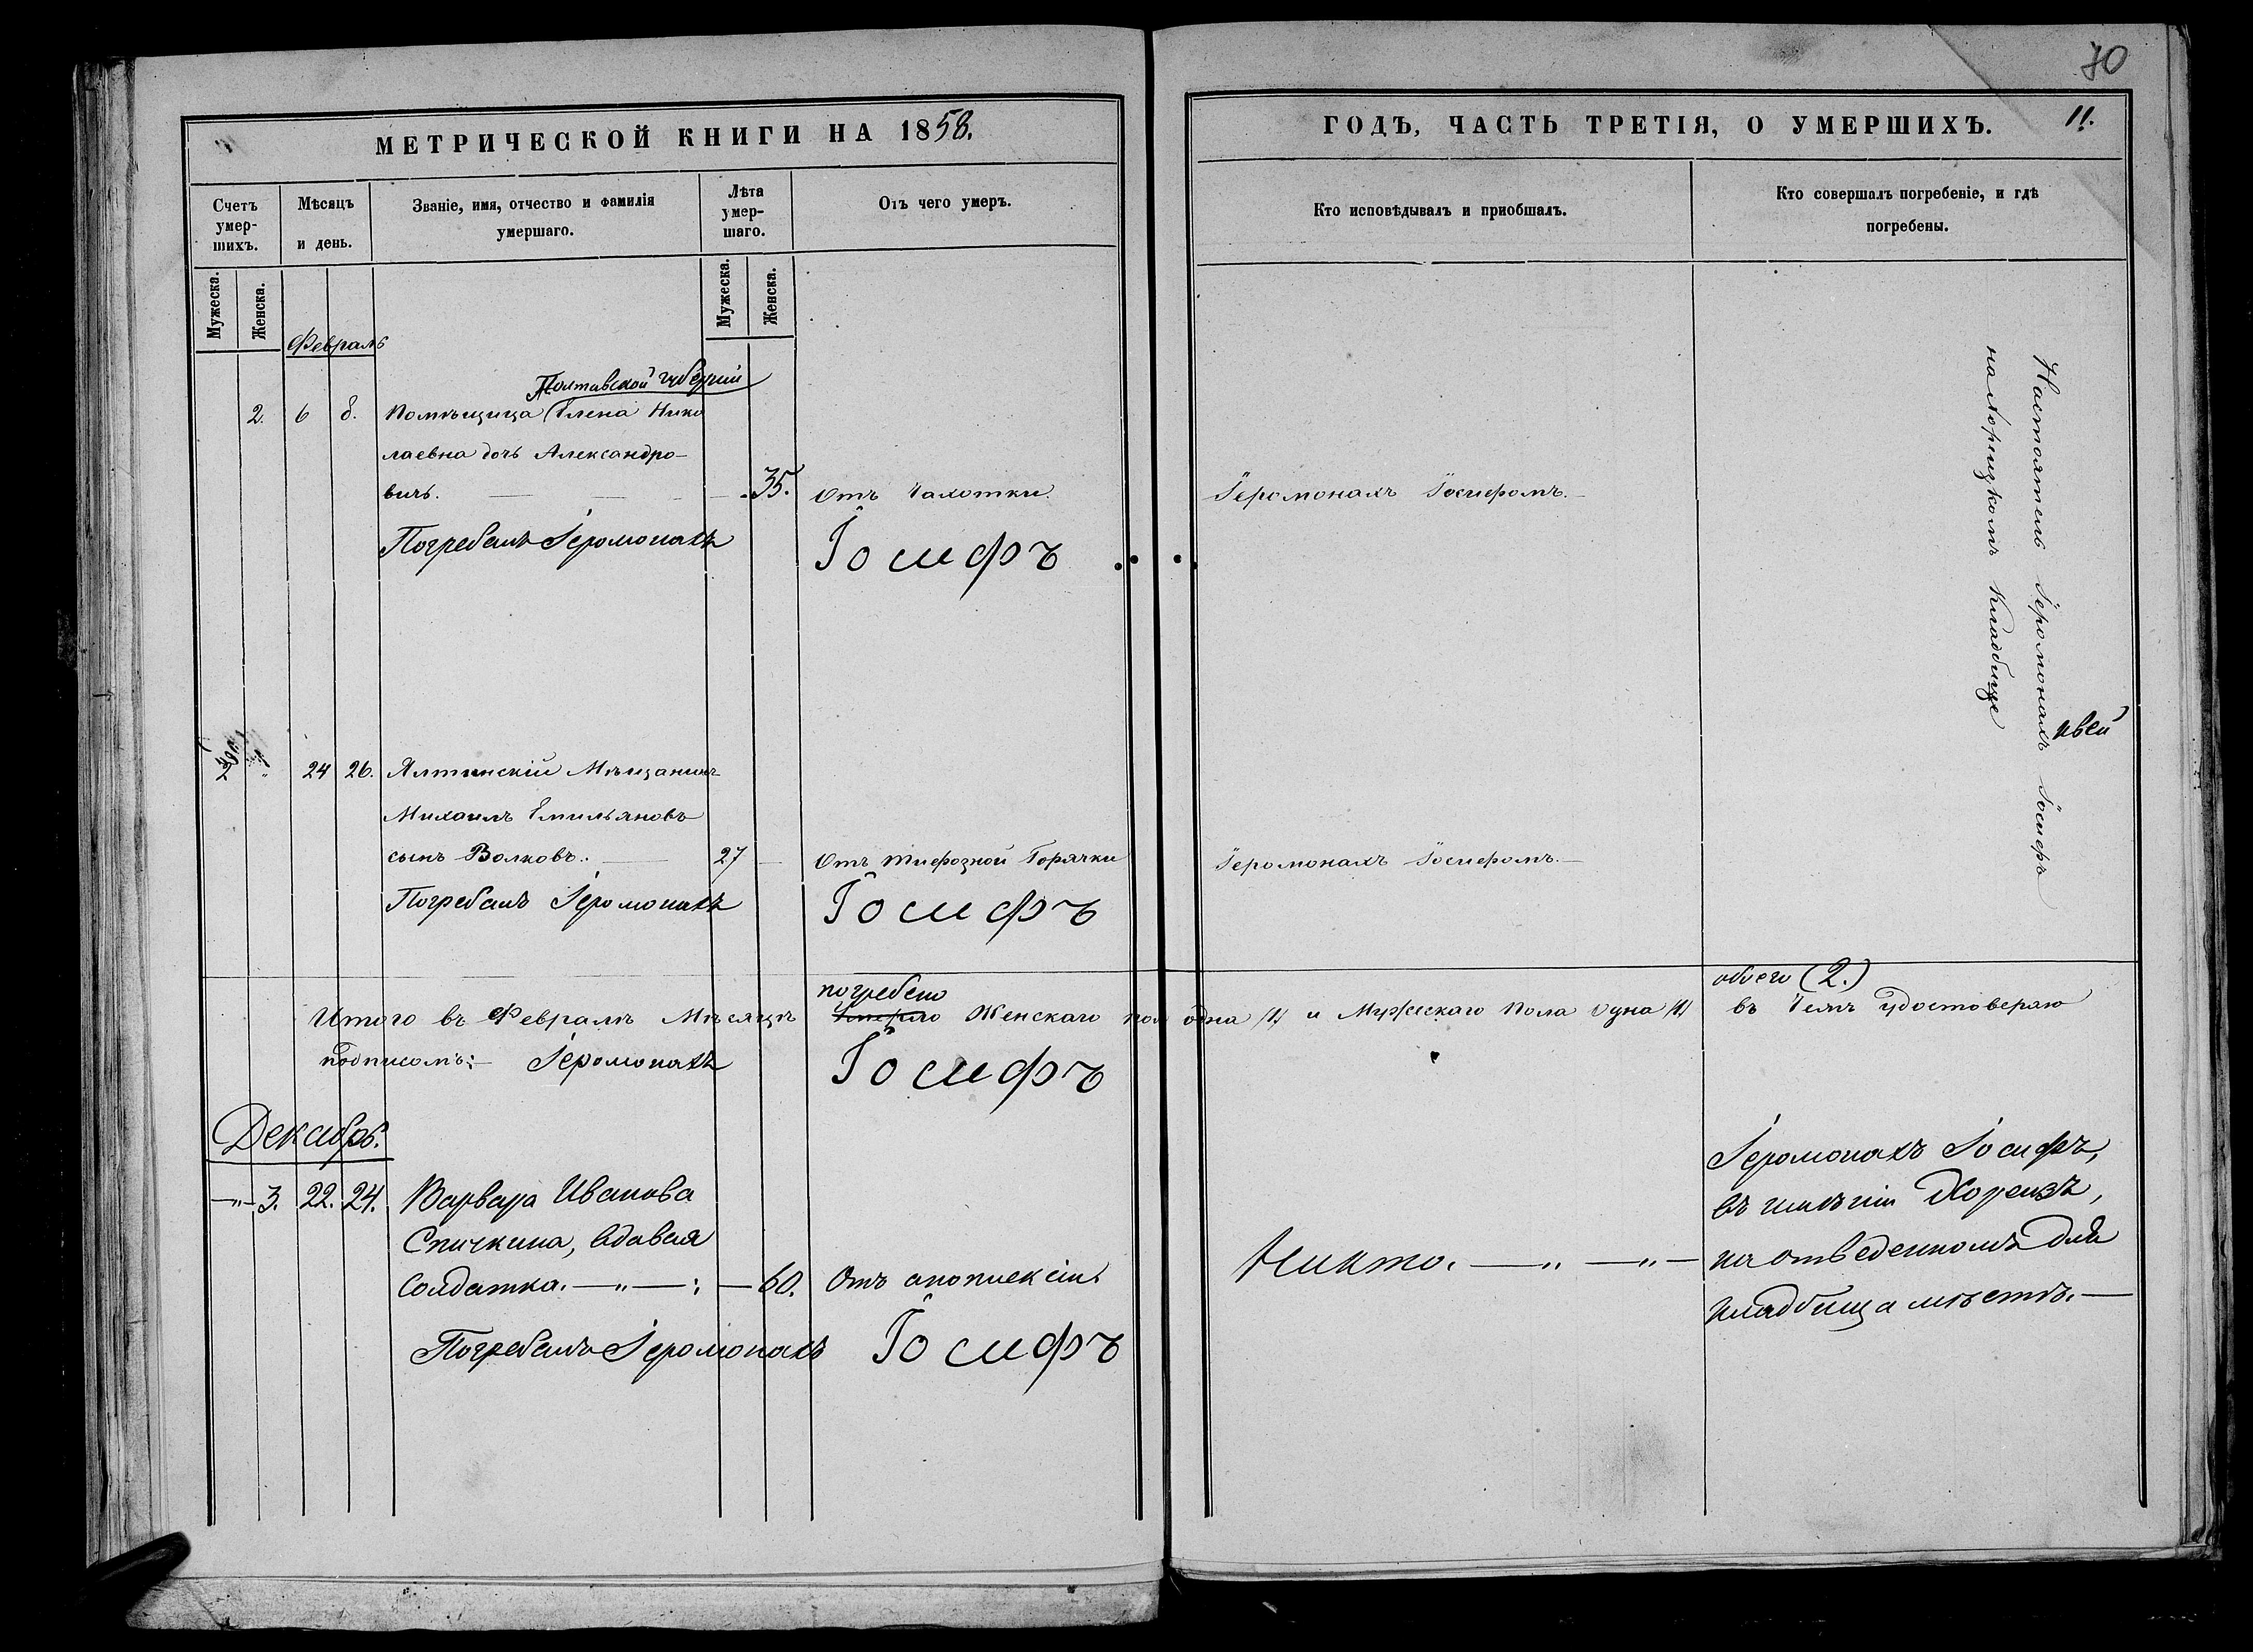 70
МЕТРИЧЕСКОЙ КНИГИ НА 1858.
Счетъ умер-шихъ.
Мѣсяцъ и день.
Званіе, имя, отчество и фамилія умершаго.
Лѣта умер-шаго.
Отъ чего умеръ.
Мужеска.
Женска.
Мужеска.
Женска.
Февраль
Полтавской губерніи
2. 6 8. Помѣщица Елена Нико
лаевна дочь Александро-
вичь. 35. Отъ Чахотки.
Погребалъ Іеромонахъ Іосифъ
24 26. Ялтинскій Мѣщанинъ
Михаилъ Емильяновъ
сынъ Волковъ. 27 Отъ тифозной Горячки
Погребалъ Іеромонахъ Іосифъ
погребено
Итого въ Февралѣ Мѣсяцѣ Умерло Женскаго пола
подписомъ:- Іеромонахъ Іосифъ
Декабрь.
-"- 3. 22. 24. Варвара Иванова
Спичкина, вдовая
Солдатка. -"- : - 60. Отъ апоплексіи.
Погребалъ Іеромонахъ Іосифъ
ГОДЪ, ЧАСТЬ ТРЕТІЯ, О УМЕРШИХЪ. 11.
Кто исповѣдывалъ и приобшалъ.
Кто совершалъ погребеніе, и гдѣ
погребены.
Іеромонахъ Іосифомъ.-
Настоятель Іеромонахъ Іосифъ
на Кладбище
Іеромонахъ Іосифомъ.-
обоего (2.)
одна /1/ и Мужескаго Пола Одна /1/ въ Чемъ удостоверяю
Никто. -"- -"-
Іеромонахъ Іосифъ,
въ имѣніи Хореизъ,
на отведенномъ для
кладбища мѣстѣ.-